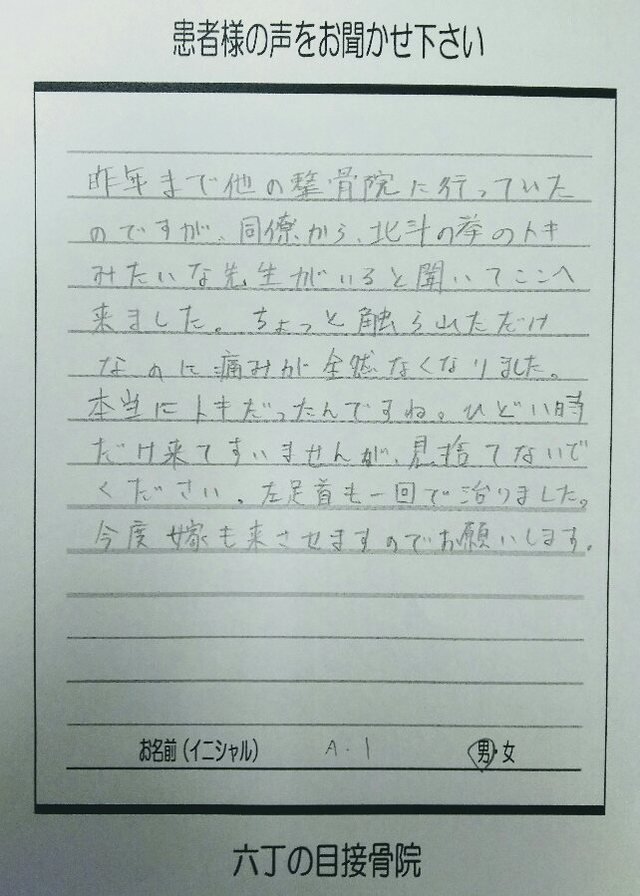 患者様の声をお聞かせ下さい
昨年まで他の整骨院に行っていた
のですが、同僚から、北斗の拳のトキ
みたいな先生がいると聞いてここへ
来ました。ちょっと触られただけ
なのに痛みが全然なくなりました。
本当にトキだったんですね。ひどい時
だけ来てすいませんが、見捨てないで
ください。左足首も一回で治りました。
今度嫁も来させますのでお願いします。
お名前(イニシャル) A・I 男・女
六丁の目接骨院